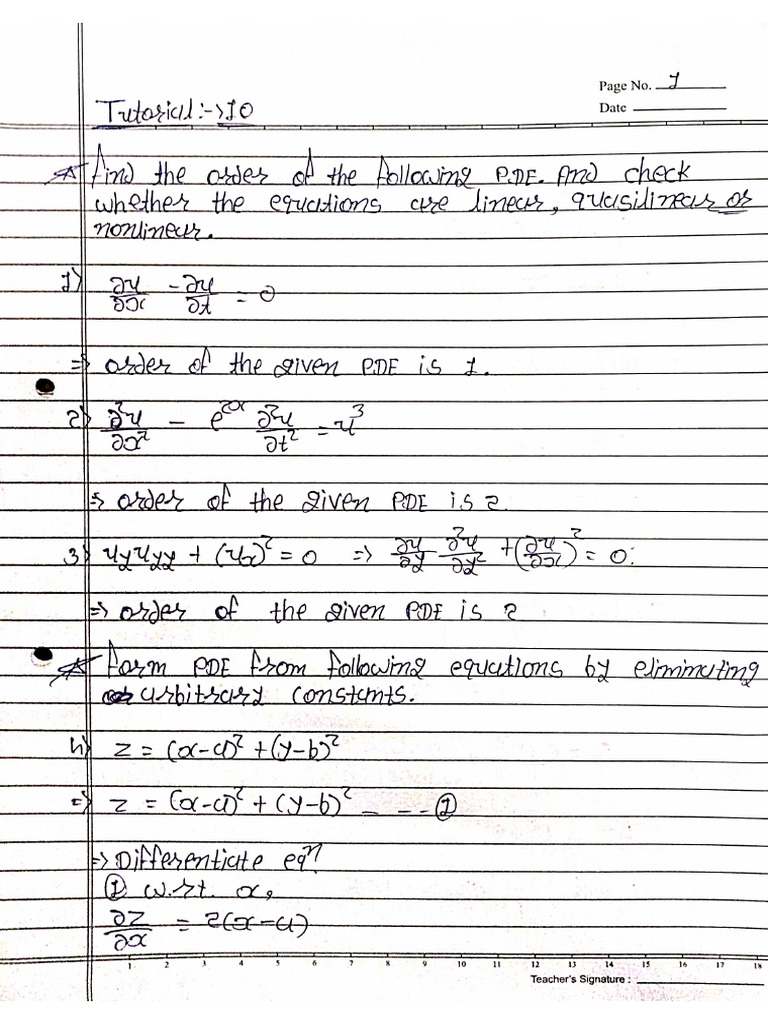 Page No. 1
Tutorial:→10
Date
☆ Find the order of the following P.DE. And check
whether the equations are linear, quasilinear or
nonlinear.
1) ∂u/∂x - ∂u/∂t = 0
⇒ order of the given PDE is 1.
2) ∂²u/∂x² - e^2x ∂²u/∂t² = u³
⇒ order of the given PDE is 2.
3) uyuyy + (ux)² = 0 ⇒ ∂u/∂y ∂²u/∂y² + (∂u/∂x)² = 0.
⇒ order of the given PDE is 2
☆ Form PDE from following equations by eliminating
arbitrary constants.
4) z = (x-a)² + (y-b)²
⇒ z = (x-a)² + (y-b)² _ _ _ ①
⇒ Differentiate eqⁿ
① w.r.t. x,
∂z/∂x = 2(x-a)
1 2 3 4 5 6 7 8 9 10 11 12 13 14 15 16 17 18
Teacher's Signature :